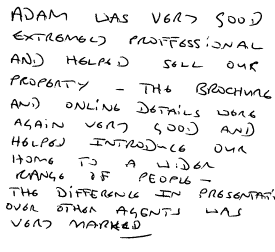 ADAM WAS VERY GOOD
EXTREMELY PROFFESSIONAL
AND HELPED SELL OUR
PROPERTY - THE BROCHURE
AND ONLINE DETAILS WERE
AGAIN VERY GOOD AND
HELPED INTRODUCE OUR
HOME TO A WIDER
RANGE OF PEOPLE -
THE DIFFERENCE IN PRESENTATI
OVER OTHER AGENTS WAS
VERY MARKED